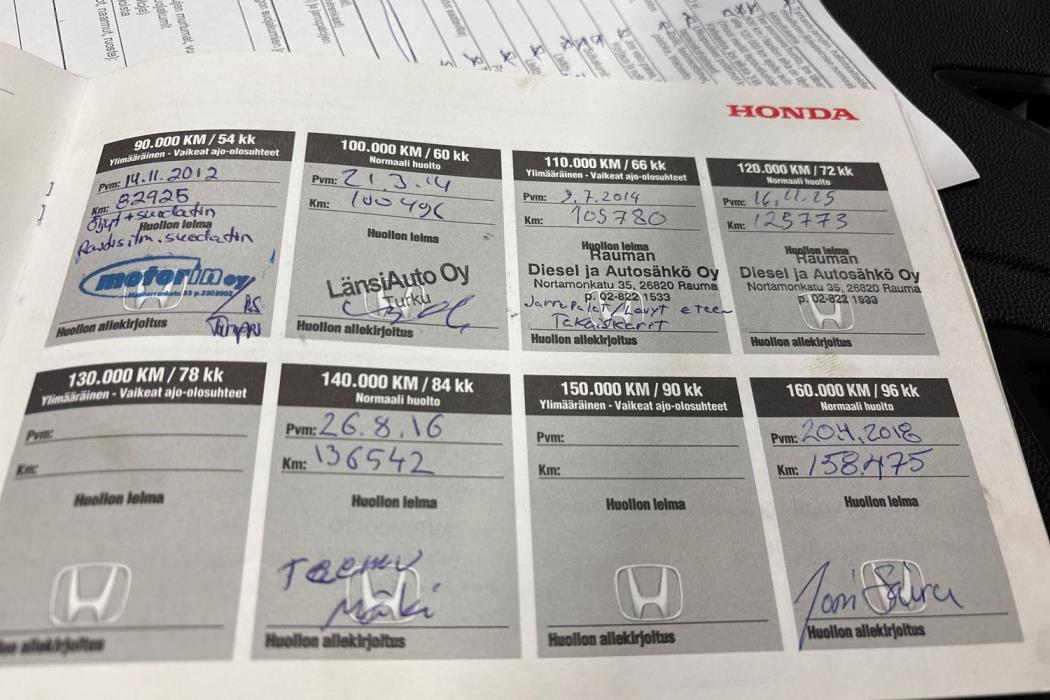 HONDA
90.000 KM / 54 kk
Ylimääräinen - Vaikeat ajo-olosuhteet
Pvm: 14.11.2012
Km: 82925
Öljyt + suodatin
Huollon leima
Raitisilm. suodatin
motorin oy
Huollon allekirjoitus
100.000 KM / 60 kk
Normaali huolto
Pvm: 21.3.14
Km: 100496
Huollon leima
LänsiAuto Oy
Turku
Huollon allekirjoitus
110.000 KM / 66 kk
Ylimääräinen - Vaikeat ajo-olosuhteet
Pvm: 9.7.2014
Km: 105780
Huollon leima
Rauman
Diesel ja Autosähkö Oy
Nortamonkatu 35, 26820 Rauma
p. 02-822 1533
Jarrupalat/Levyt eteen
Huollon allekirjoitus
120.000 KM / 72 kk
Normaali huolto
Pvm: 16.11.15
Km: 125773
Huollon leima
Rauman
Diesel ja Autosähkö Oy
Nortamonkatu 35, 26820 Rauma
p. 02-822 1533
Huollon allekirjoitus
130.000 KM / 78 kk
Ylimääräinen - Vaikeat ajo-olosuhteet
Pvm:
Km:
Huollon leima
allekirjoitus
140.000 KM / 84 kk
Normaali huolto
Pvm: 26.8.16
Km: 136542
Huollon leima
Teemu
Mäki
Huollon allekirjoitus
150.000 KM / 90 kk
Ylimääräinen - Vaikeat ajo-olosuhteet
Pvm:
Km:
Huollon leima
Huollon allekirjoitus
160.000 KM / 96 kk
Normaali huolto
Pvm: 20.4.2018
Km: 158475
Huollon leima
Joni
Huollon allekirjoitus